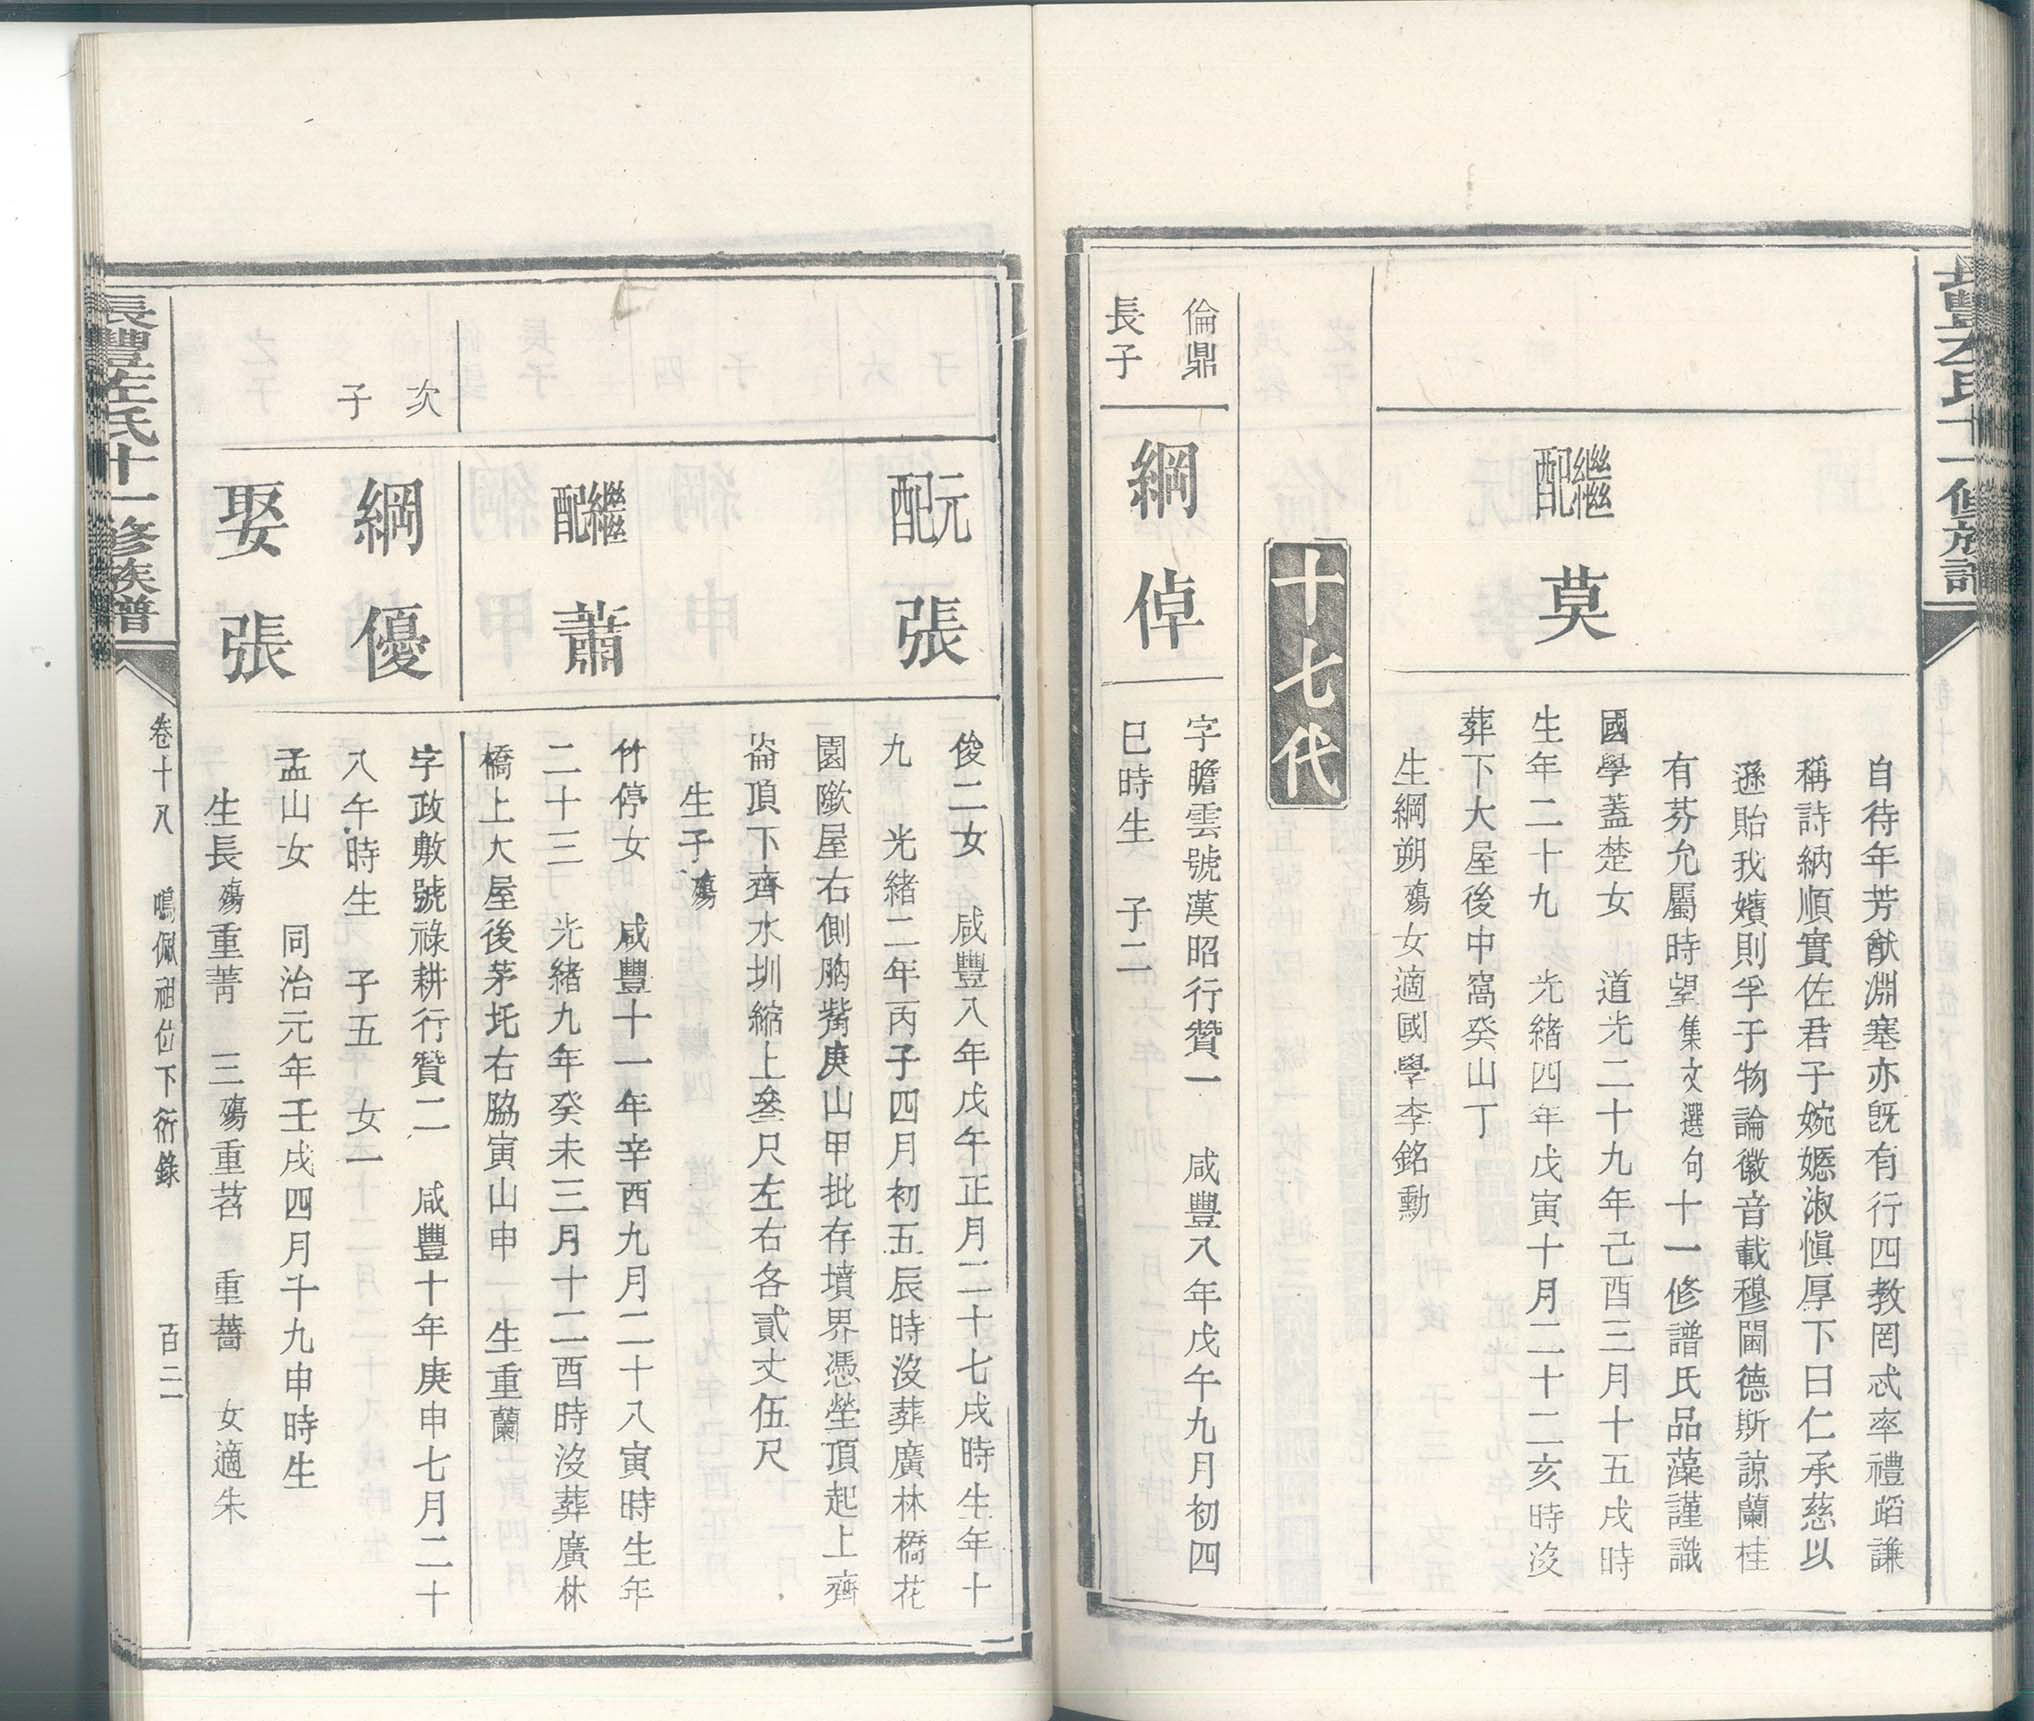 長豐左氏十一修族譜
自待年芳猷淵塞亦既有行四教罔忒率禮蹈謙
稱詩納順實佐君子婉嫕淑愼厚下曰仁承慈以
遜貽我嬪則孚于物論徽音載穆閫德斯諒蘭桂
有芬允屬時望集文選句十一修譜氏品藻謹識
繼配莫
國學蓋楚女 道光二十九年己酉三月十五戌時
生年二十九 光緒四年戊寅十月二十二亥時沒
葬下大屋後中窩癸山丁
生綱朔殤女適國學李銘勳
十七代
倫鼎
長子
綱倬
字瞻雲號漢昭行贊一 咸豐八年戊午九月初四
巳時生 子二
元配張
俊二女 咸豐八年戊午正月二十七戌時生年十
九 光緒二年丙子四月初五辰時沒葬廣林橋花
園墘屋右側胸嘴庚山甲批存墳界憑塋頂起上齊
崙頂下齊水圳縮上叄尺左右各貳丈伍尺
生子殤
繼配蕭
竹停女 咸豐十一年辛酉九月二十八寅時生年
二十三 光緒九年癸未三月十二酉時沒葬廣林
橋上大屋後茅坨右脇寅山申 生重蘭
次子
綱優
字政敷號祿耕行贊二 咸豐十年庚申七月二十
八午時生 子五 女一
娶張
孟山女 同治元年壬戌四月十九申時生
生長殤重菁 三殤重茗 重薔 女適朱
長豐左氏十一修族譜
卷十八 鳴佩祖位下衍錄 百二